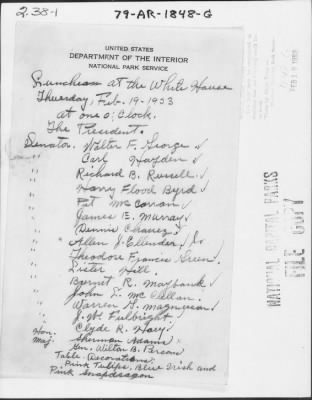 2.38-1
79-AR-1848-G
UNITED STATES
DEPARTMENT OF THE INTERIOR
NATIONAL PARK SERVICE
Luncheon at the White House
Thursday, Feb. 19-1953
at one o'clock.
The President.
Senator. Walter F. George ✓
" Carl Hayden ✓
" Richard B. Russell ✓
" Harry Flood Byrd ✓
" Pat McCarran ✓
" James E. Murray ✓
" Dennis Chavez ✓
" Allen J. Ellender ✓
" Theodore Francis Green.
" Lister Hill.
" Burnet R. Maybank ✓
" John L. McClellan.
" Warren G. Magnuson ✓
" J. W. Fulbright ✓
" Clyde R. Hoey ✓
Hon. Sherman Adams ✓
Maj. Gen. Wilton B. Persons
Table Decorations:
Pink Tulips, Blue Irish and
Pink Snapdragon
NATIONAL CAPITAL PARKS
FILE COPY